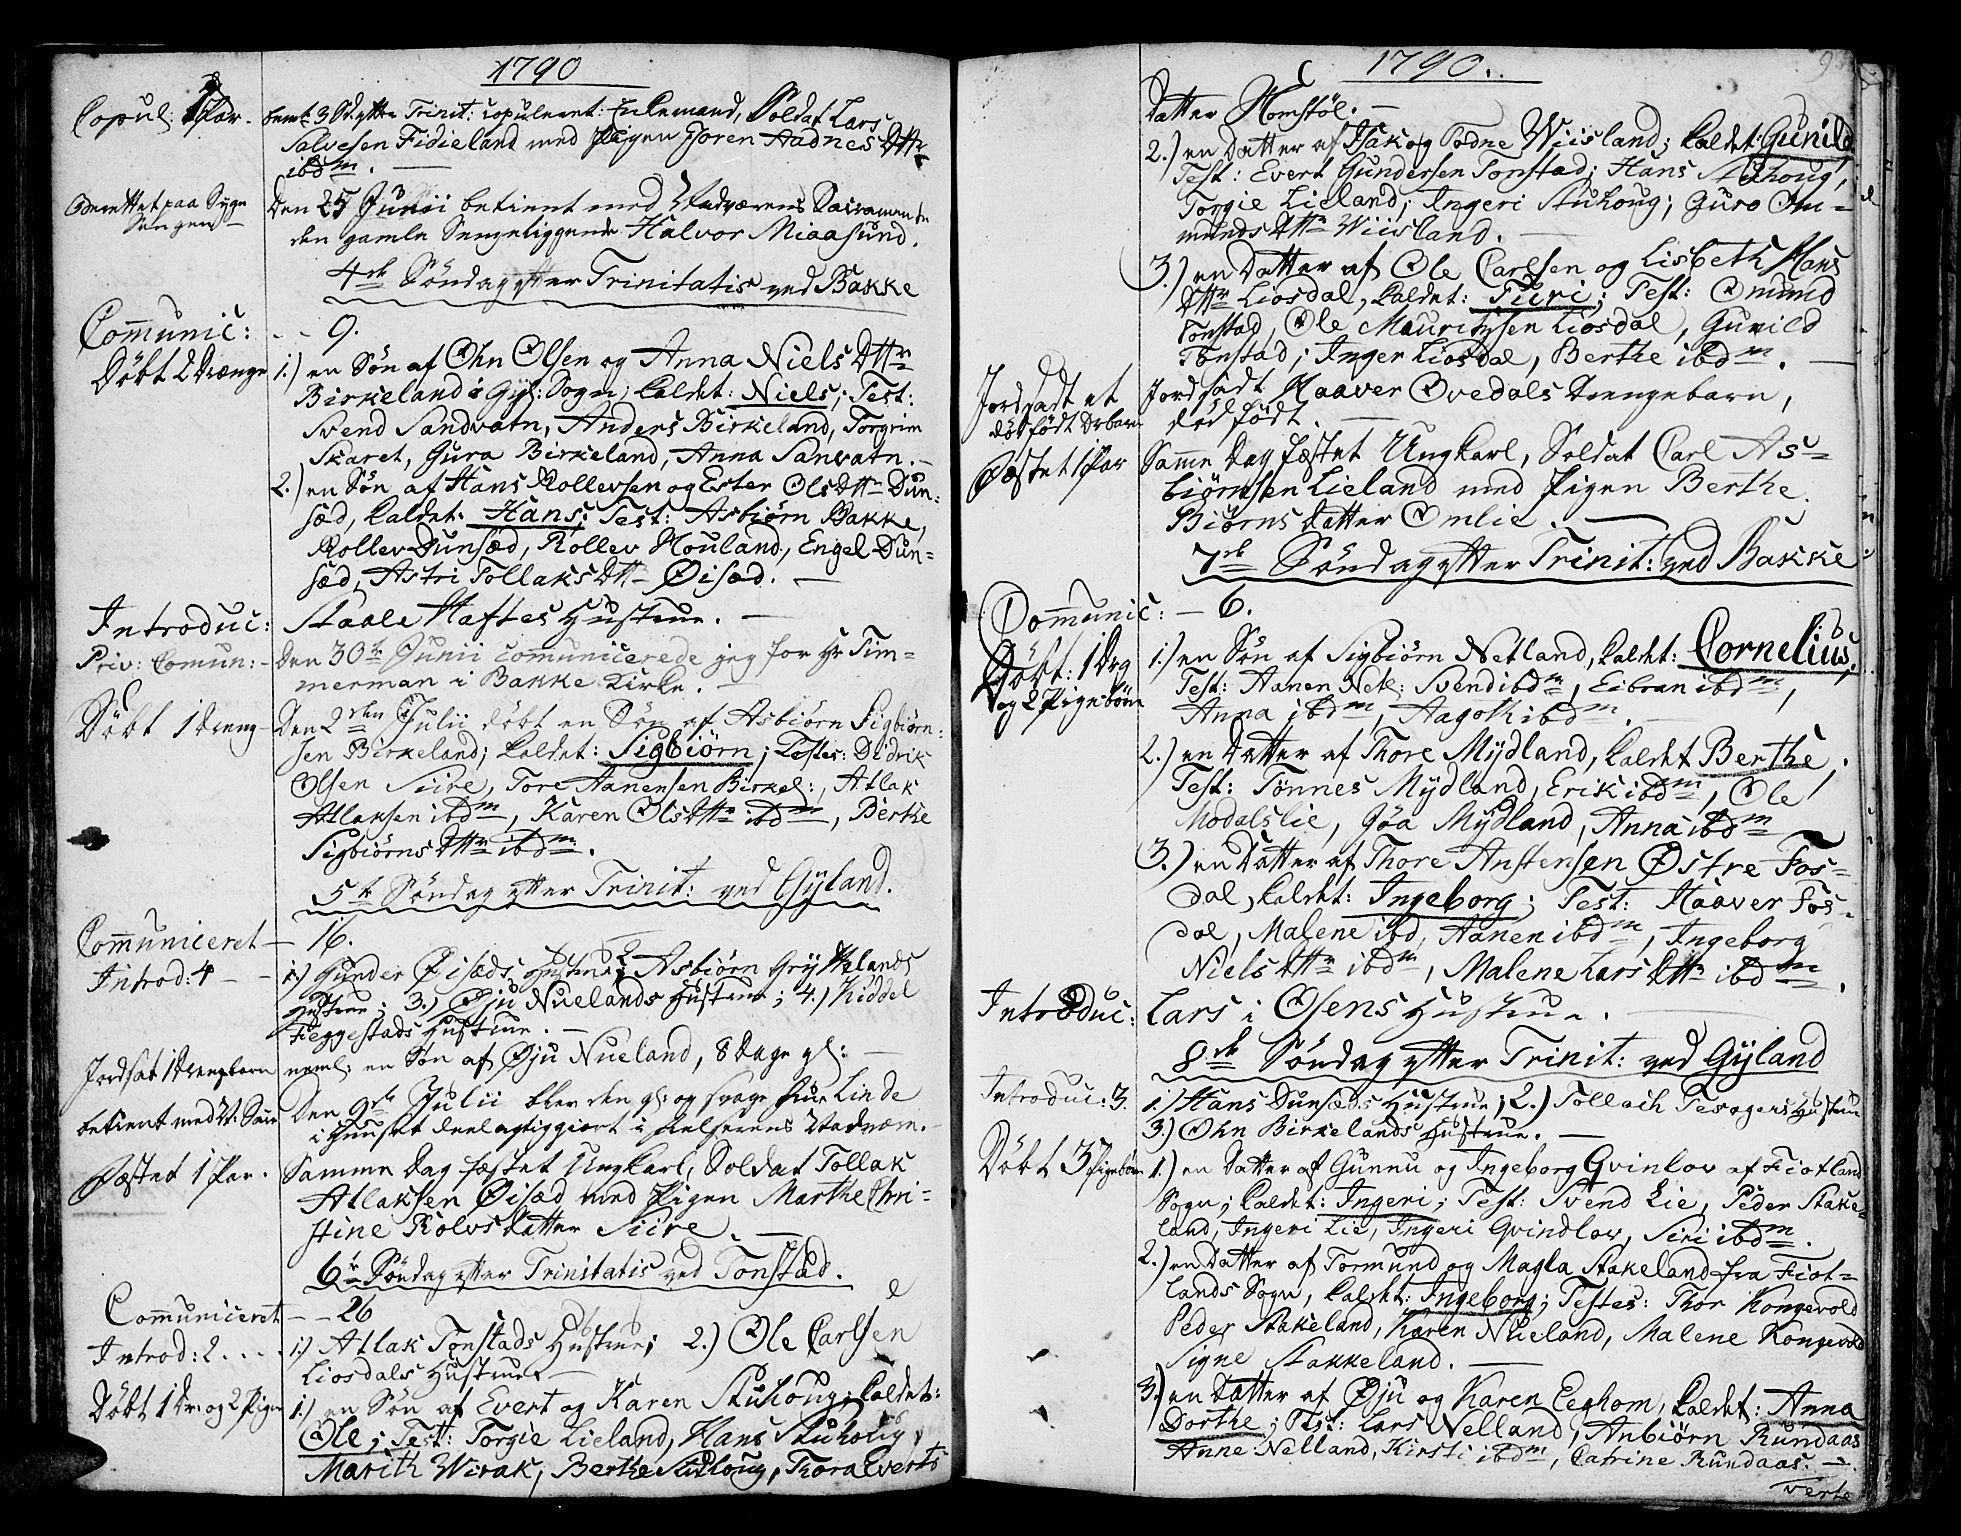 1790
Copul: 1 Par.
Semt: 3 S: efter Trinit: copuleret: Enkemand, Soldat Lars
Salvesen Fidieland med Pigen Joren Aadnes Dttr
ibdm.
Berettet paa Syge
Sengen
Den 25 Junii betient med Nadverens Sacramente
den gamle Sengeliggende Halvor Miaasund.
4de Søndag efter Trinitatis ved Bakke
Communic: - - 9.
Døbt 2 Drenge
1.) en Søn af Ohn Olsen og Anna Niels Dttr
Birkeland i Gyl: Sogn; kaldet: Niels; Test:
Svend Sandvatn, Anders Birkeland, Torgrim
Skaret, Gura Birkeland, Anna Sanvatn.
2.) en Søn af Hans Rollevsen og Ester Ols Dttr Dun-
sæd, kaldet: Hans; Test: Asbiørn Bakke,
Rollev Dunsæd, Rollev Houland, Engel Dun-
sæd, Astri Tollaks Dtt Øisæd.
Introduc: Staale Haftes Hustrue.
Priv: Comun: Den 30te Junii comunicerede jeg for Hr Tim-
merman i Bakke Kirke.
Døbt 1 dreng
Den 2den Julii døbt en Søn af Asbiørn Sigbiørn-
sen Birkeland; kaldet: Sigbiørn; Testes: Didrik
Olsen Siire, Tore Aanensen Birkel:, Atlak
Atlaksen ibdm, Karen Ols Dttr ibdm, Berthe
Sigbiørns Dttr ibdm.
5te Søndag efter Trinit: ved Gyland.
Communiceret - 16.
Introd: 4
1.) Gunder Øisæds Hustrue; 2 Asbiørn Gryttelands
Hustrue; 3.) Øju Nuelands Hustrue; 4.) Kiddel
Feggestads Hustrue.
Jordsat 1 Drengebarn neml: en Søn af Øju Nueland, 8 Dage gl:
betient med N: Sacr
Den 9de Julii blev den gl: og svage Siur Linde
i Huuset deelagtiggiort i Frelserens Nadvere.
Fæstet 1 Par.
Samme dag fæstet Ungkarl, Soldat Tollak
Atlaksen Øisæd med Pigen Marthe Chri-
stine Rolvsdatter Siire.
6te Søndag efter Trinitatis ved Tonstad.
Communiceret - - 26
Introd: 2
1.) Atlak Tonstads Hustrue; 2.) Ole Carlsen
Liosdals Hustrue.
Døbt 1 Dr: og 2 Piger
1.) en Søn af Evert og Karen Stuhoug; kaldet:
Ole; Test: Torgie Lieland, Hans Stuhoug,
Marith Wirak, Berthe Stuhoug, Thora Everts
1790.
datter Homstøl.
2.) en Datter af Isak og Todne Wiisland; kaldet: Gunild
Test: Evert Gundersen Tonstad; Hans Stuhoug,
Torgie Lieland; Ingeri Stuhoug; Guro Om-
munds Dttr Wiisland.
3.) en Datter af Ole Carlsen og Lisbeth Hans
Dttr Liosdal, kaldet: Turi; Test: Omund
Tonstad, Ole Mauritzsen Liosdal, Gunild
Tonstad; Inger Liosdal, Berthe ibdm.
Jordsadt et
dødfødt Drbarn
Jordsadt Haaver Ovedals Drengebarn,
død født.
Fæstet 1 Par
Samme dag fæstet Ungkarl, Soldat Carl As-
biørnsen Lieland med Pigen Berthe
Biørns datter Omlie.
7de Søndag efter Trinit: ved Bakke
Communic: - 6.
Døbt: 1 Drg
og 2 Pigebørn
1.) en Søn af Sigbiørn Netland, kaldet: Cornelius;
Test: Aanen Netl: Svend ibdm, Eibran ibdm,
Anna ibdm, Aagoth ibdm.
2.) en Datter af Thore Mydland, kaldet Berthe;
Test: Tønnes Mydland, Erik ibdm, Ole
Modalslie, Gøa Mydland, Anna ibdm
3.) en Datter af Thore Anstensen Østre Fos-
dal, kaldet: Ingeborg; Test: Haaver Fos-
dal, Malene ibd, Aanen ibdm, Ingeborg
Niels Dttr ibdm, Malene Lars Dttr ibdm.
Introduc: Lars i Osens Hustrue.
8de Søndag efter Trinit: ved Gyland
Introduc: 3.
1.) Hans Dunsæds Hustrue; 2.) Tollach Tesagers Hustrue
3.) Ohn Birkelands Hustrue.
Døbt 3 Pigebørn
1.) en Datter af Gunnu og Ingeborg Qvinlov af Fiotland
Sogn; kaldet: Ingeri; Test: Svend Lie, Peder Stake-
land, Ingeri Lie, Ingeri Qvindlov, Siri ibdm.
2.) en Datter af Tormund og Magla Stakeland fra Fiot-
lands Sogn, kaldet: Ingeborg; Testes: Thor Kongevold
Peder Stakeland, Karen Nueland, Malene Kongevold
Signe Stakkeland.
3.) en Datter af Øju og Karen Eeghom, kaldet: Anna
Dorthe; Test: Lars Nelland, Anbiørn Rundaas
Anne Nelland, Kirsti ibdm, Catrine Rundaas.
verte